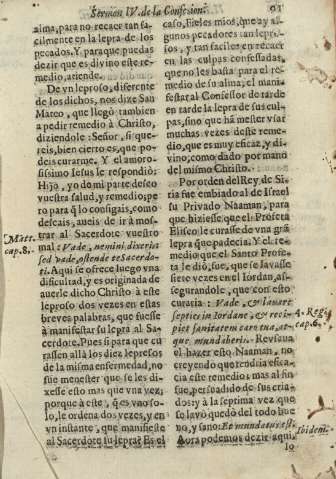 Sermon IV. de la Confesion.
91
alma, para no recaer tan fa-
cilmente en la lepra de los
pecados. Y para que puedas
dezir que es divino este re-
medio, atiende.
De vn leproso, diferente
de los dichos, nos dize San
Mateo, que llegò tambien
a pedir remedio à Christo,
diziendole: Señor, si que-
reis, bien cierto es, que po-
deis curarme. Y el amoro-
sissimo Iesus le respondiò:
Hijo, yo de mi parte deseo
vuestra salud, y remedio; pe-
ro para q̃ lo consigais, como
deseais, aveis de ir à mos-
trar al Sacerdote vuestro
mal: Vade, nemini dixeris
sed vade, ostende te Sacerdo-
ti. Aqui se ofrece luego vna
dificultad, y es originada de
averle dicho Christo à este
leproso dos vezes en estas
breves palabras, que fuesse
à manifestar su lepra al Sa-
cerdote. Pues si para que cu-
rassen allà los diez leprosos
de la misma enfermedad, no
fue menester que se les di-
xesse esto mas que vna vez;
porque à este, q̃ es vno so-
lo, le ordena dos vezes, y en
vn instante, que manifieste
al Sacerdote su lepra? Es el
Matt.
cap. 8.
caso, Fieles mios, que ay al-
gunos pecadores tan lepro-
sos, y tan faciles en recaer
en las culpas confessadas,
que no les basta para el re-
medio de su alma, el mani-
festar al Confessor de tarde
en tarde la lepra de sus cul-
pas, sino que hà menester vsar
muchas vezes deste reme-
dio, que es muy eficàz, y di-
vino, como dado por mano
del mismo Christo.
Por orden del Rey de Si-
ria fue embiado al de Israel
su Privado Naaman, para
que hiziesse, que el Profeta
Eliseo le curasse de vna grã
lepra que padecia. Y el re-
medio que el Santo Profe-
ta le diò, fue, que se lavasse
siete vezes en el Iordan, as-
segurandole, que con esto
curaria: Vade, & lavare
septies in Iordane, & reci-
piet sanitatem caro tua, at-
que mundaberis. Revsava
el hazer esto Naaman, no
creyendo que tendria efica-
cia este remedio; mas al fin
fue, persuadido de sus cria-
dos; y à la septima vez que
se lavò quedò del todo bue-
no, y sano: Et mundatus est.
Aora podemos dezir aqui,
lo
4. Regũ
cap. 6.
Ibidem.